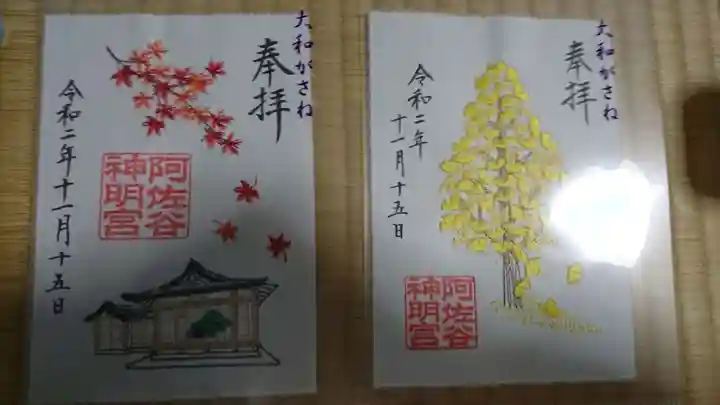 大和がさね
奉拝
令和二年十一月十五日
阿佐谷
神明宮
大和がさね
奉拝
令和二年
十一月十五日
阿佐谷
神明宮